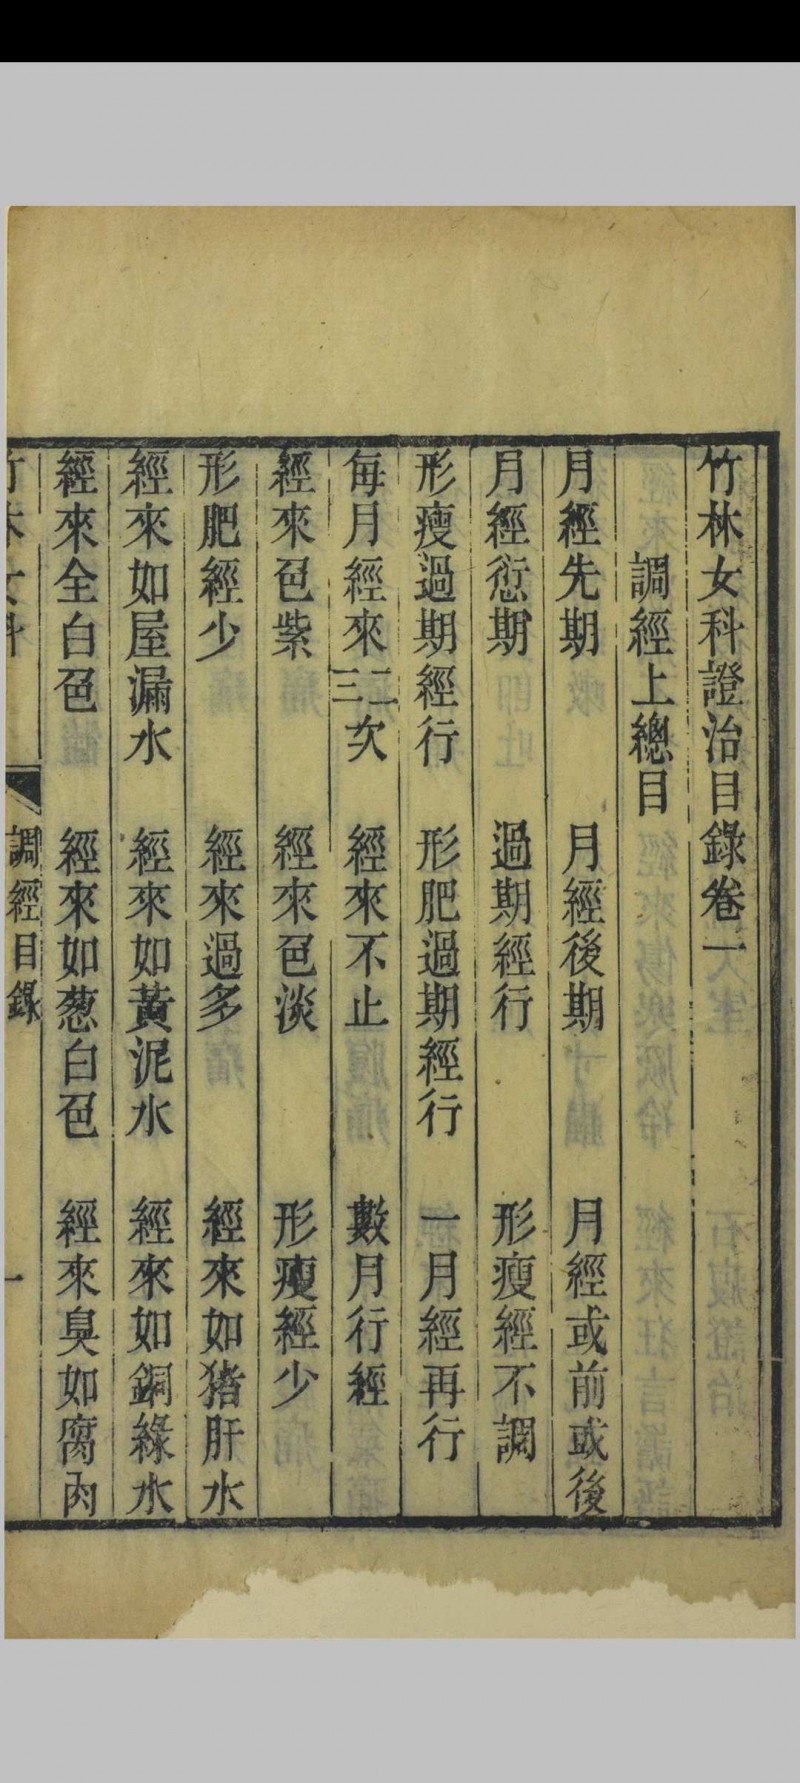 竹林女科證治目錄卷一
調經上總目
月經先期　月經後期　月經或前或後
月經愆期　過期經行　形瘦經不調
形瘦過期經行　形肥過期經行　一月經再行
每月經來二三次　經來不止　數月行經
經來色紫　經來色淡　形瘦經少
形肥經少　經來過多　經來如猪肝水
經來如屋漏水　經來如黃泥水　經來如銅綠水
經來全白色　經來如葱白色　經來臭如腐肉
竹林女科　調經目錄　一